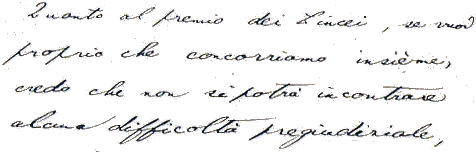 Quanto al premio dei Lincei, se vuoi
proprio che concorriamo insième,
credo che non si potrà incontrare
alcuna difficoltà pregiudiziale,